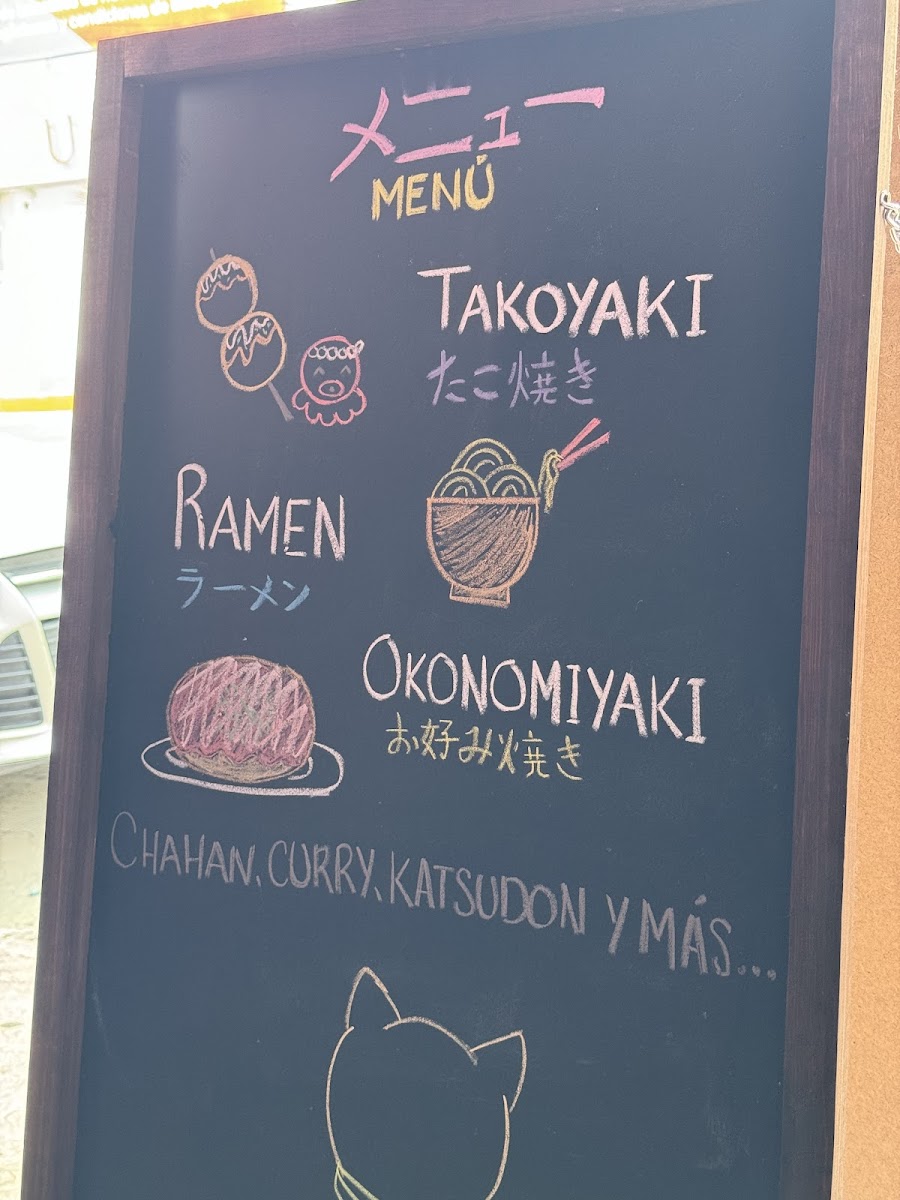 メニュー
MENÚ
TAKOYAKI
たこ焼き
RAMEN
ラーメン
OKONOMIYAKI
お好み焼き
CHAHAN, CURRY, KATSUDON Y MÁS...